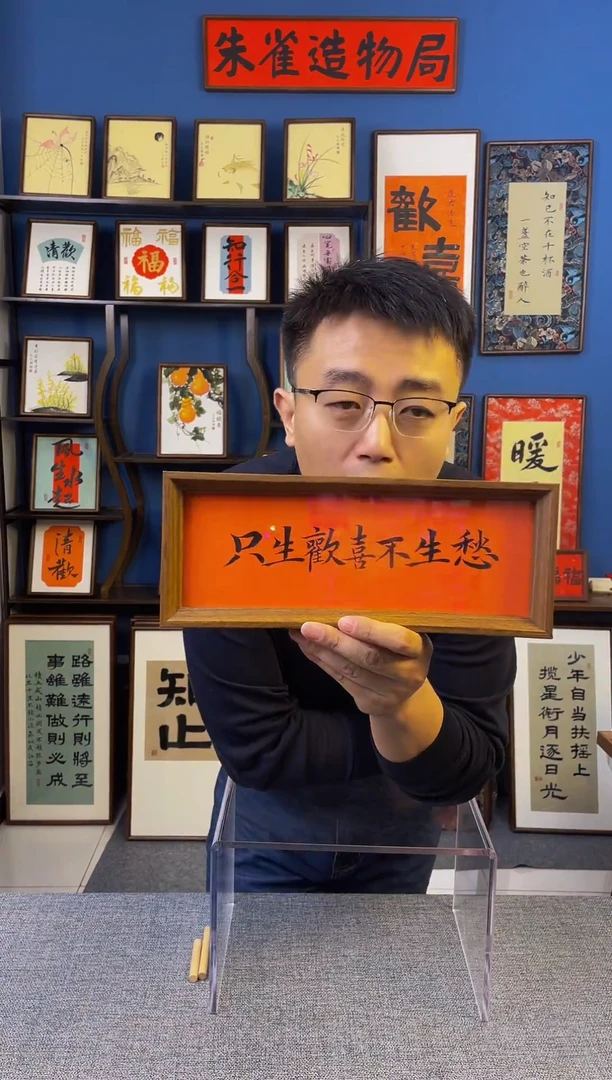 朱雀造物局
歡喜
知己不在千杯酒
一盞空茶也醉人
清歡
福福
福
福福
知行合一
暖
風生水起
清歡
只生歡喜不生愁
福
路雖遠行則將至
事雖難做則必成
知止
少年自當扶搖上
攬星衔月逐日光